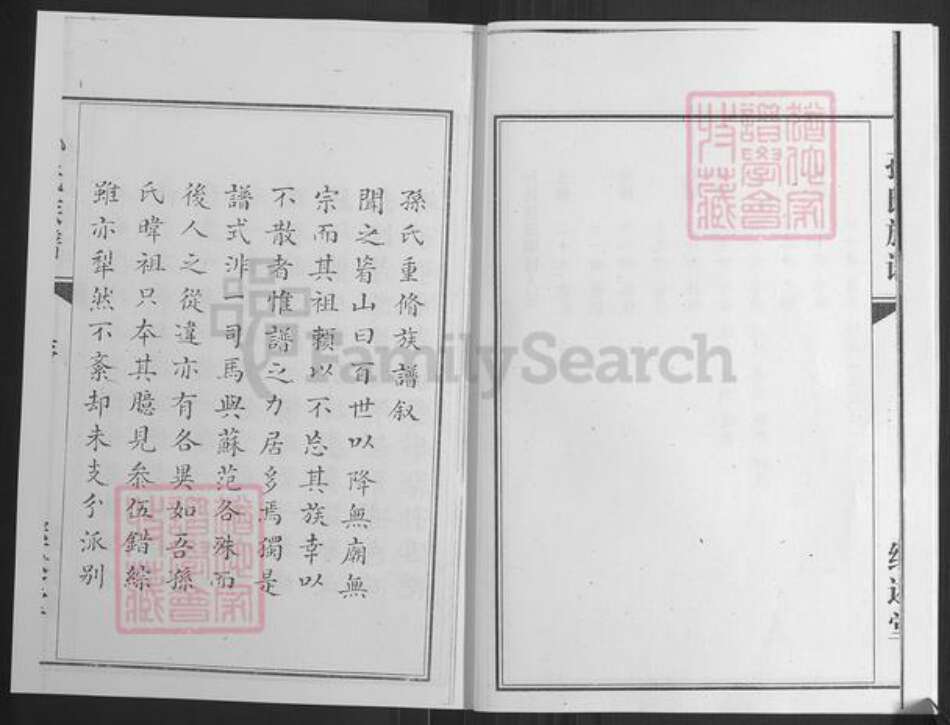 孫氏重脩族譜叙
聞之眉山曰百世以降無廟無
宗而其祖頼以不忘其族幸以
不散者惟譜之力居多焉獨是
譜式非一司馬與蘇范各殊而
後人之從違亦有各異如吾孫
氏暐祖只本其臆見叅伍錯綜
雖亦犁然不紊却未支分派别
FamilySearch
譜學會
收藏
孫氏族譜